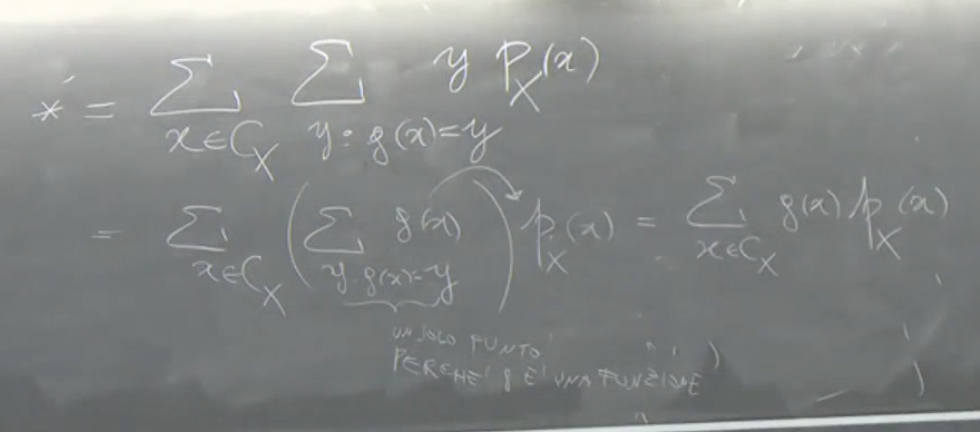 * = ∑_{x∈C_X} ∑_{y: g(x)=y} y p_X(x)
= ∑_{x∈C_X} ( ∑_{y: g(x)=y} g(x) ) p_X(x) = ∑_{x∈C_X} g(x) p_X(x)
UN SOLO PUNTO
PERCHE' g E' UNA FUNZIONE